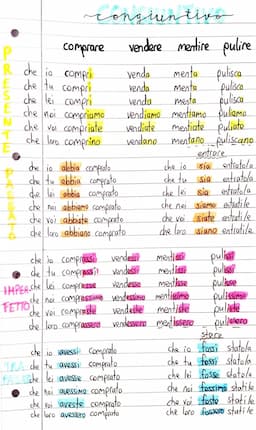 CONGIUNTIVO
congiuntivo
comprare vendere mentire pulire
PRESENTE
che io compri venda menta pulisca
che tu compri venda menta pulisca
che lei compri venda menta pulisca
che noi compriamo vendiamo mentiamo puliamo
che voi compriate vendiate mentiate puliate
che loro comprino vendano mentano puliscano
entrare
PASSATO
che io abbia comprato che io sia entrato/a
che tu abbia comprato che tu sia entrato/a
che lei abbia comprato che lei sia entrato/a
che noi abbiamo comprato che noi siamo entrati/e
che voi abbiate comprato che voi siate entrati/e
che loro abbiano comprato che loro siano entrati/e
IMPERFETTO
che io comprassi vendessi mentissi pulissi
che tu comprassi vendessi mentissi pulissi
che lei comprasse vendesse mentisse pulisse
che noi comprassimo vendessimo mentissimo pulissimo
che voi compraste vendeste mentiste puliste
che loro comprassero vendessero mentissero pulissero
che io avessi comprato che io fossi stato/a
che tu avessi comprato che tu fossi stato/a
che lei avesse comprato che lei fosse stato/a
che noi avessimo comprato che noi fossimo stati/e
che voi aveste comprato che voi foste stati/e
che loro avessero comprato che loro fossero stati/e